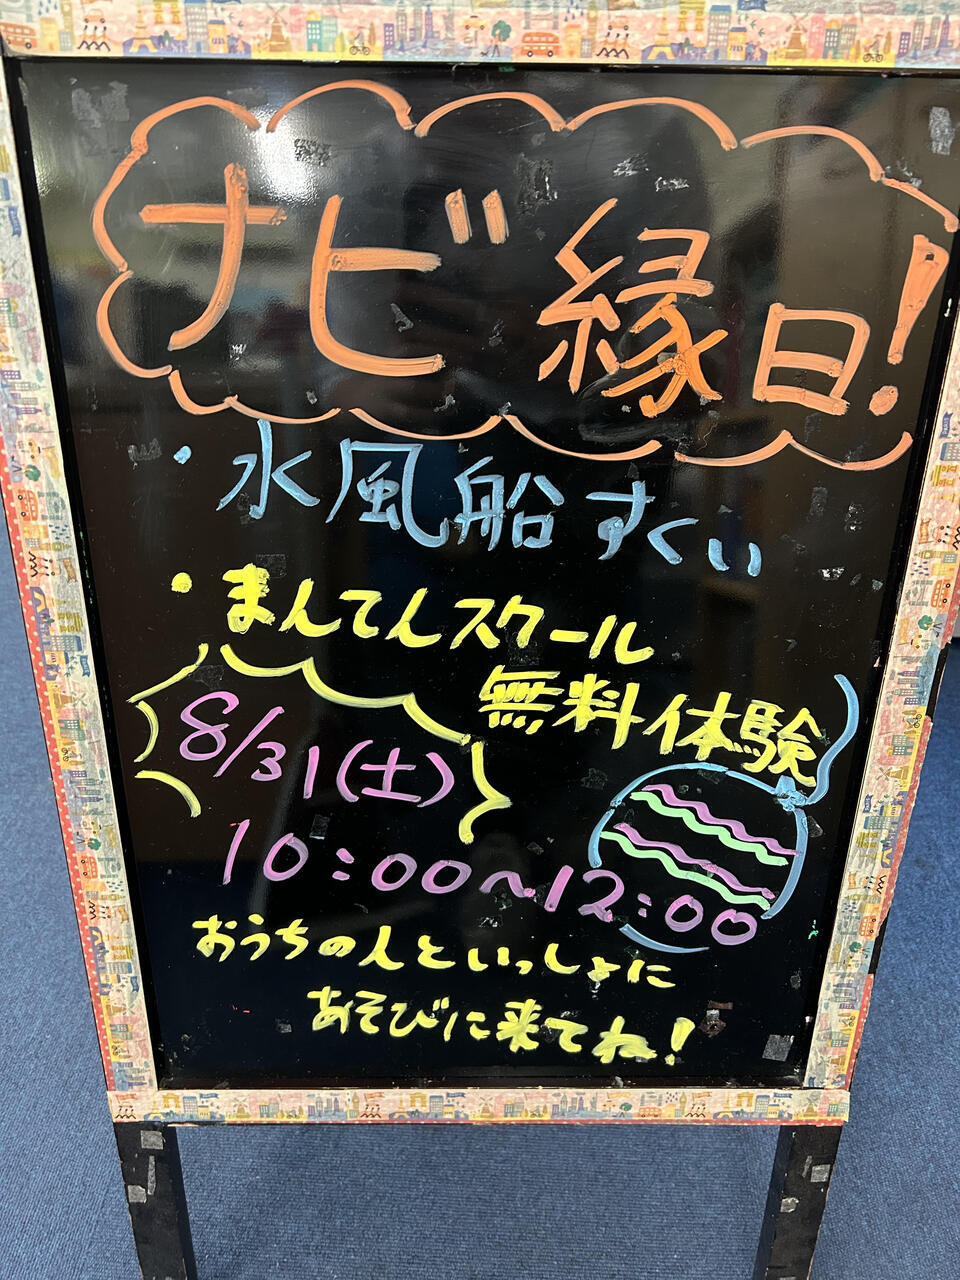 ナビ縁日!
・水風船すくい
・まんてんスクール
無料体験
8/31(土)
10:00~12:00
おうちの人といっしょに
あそびに来てね!